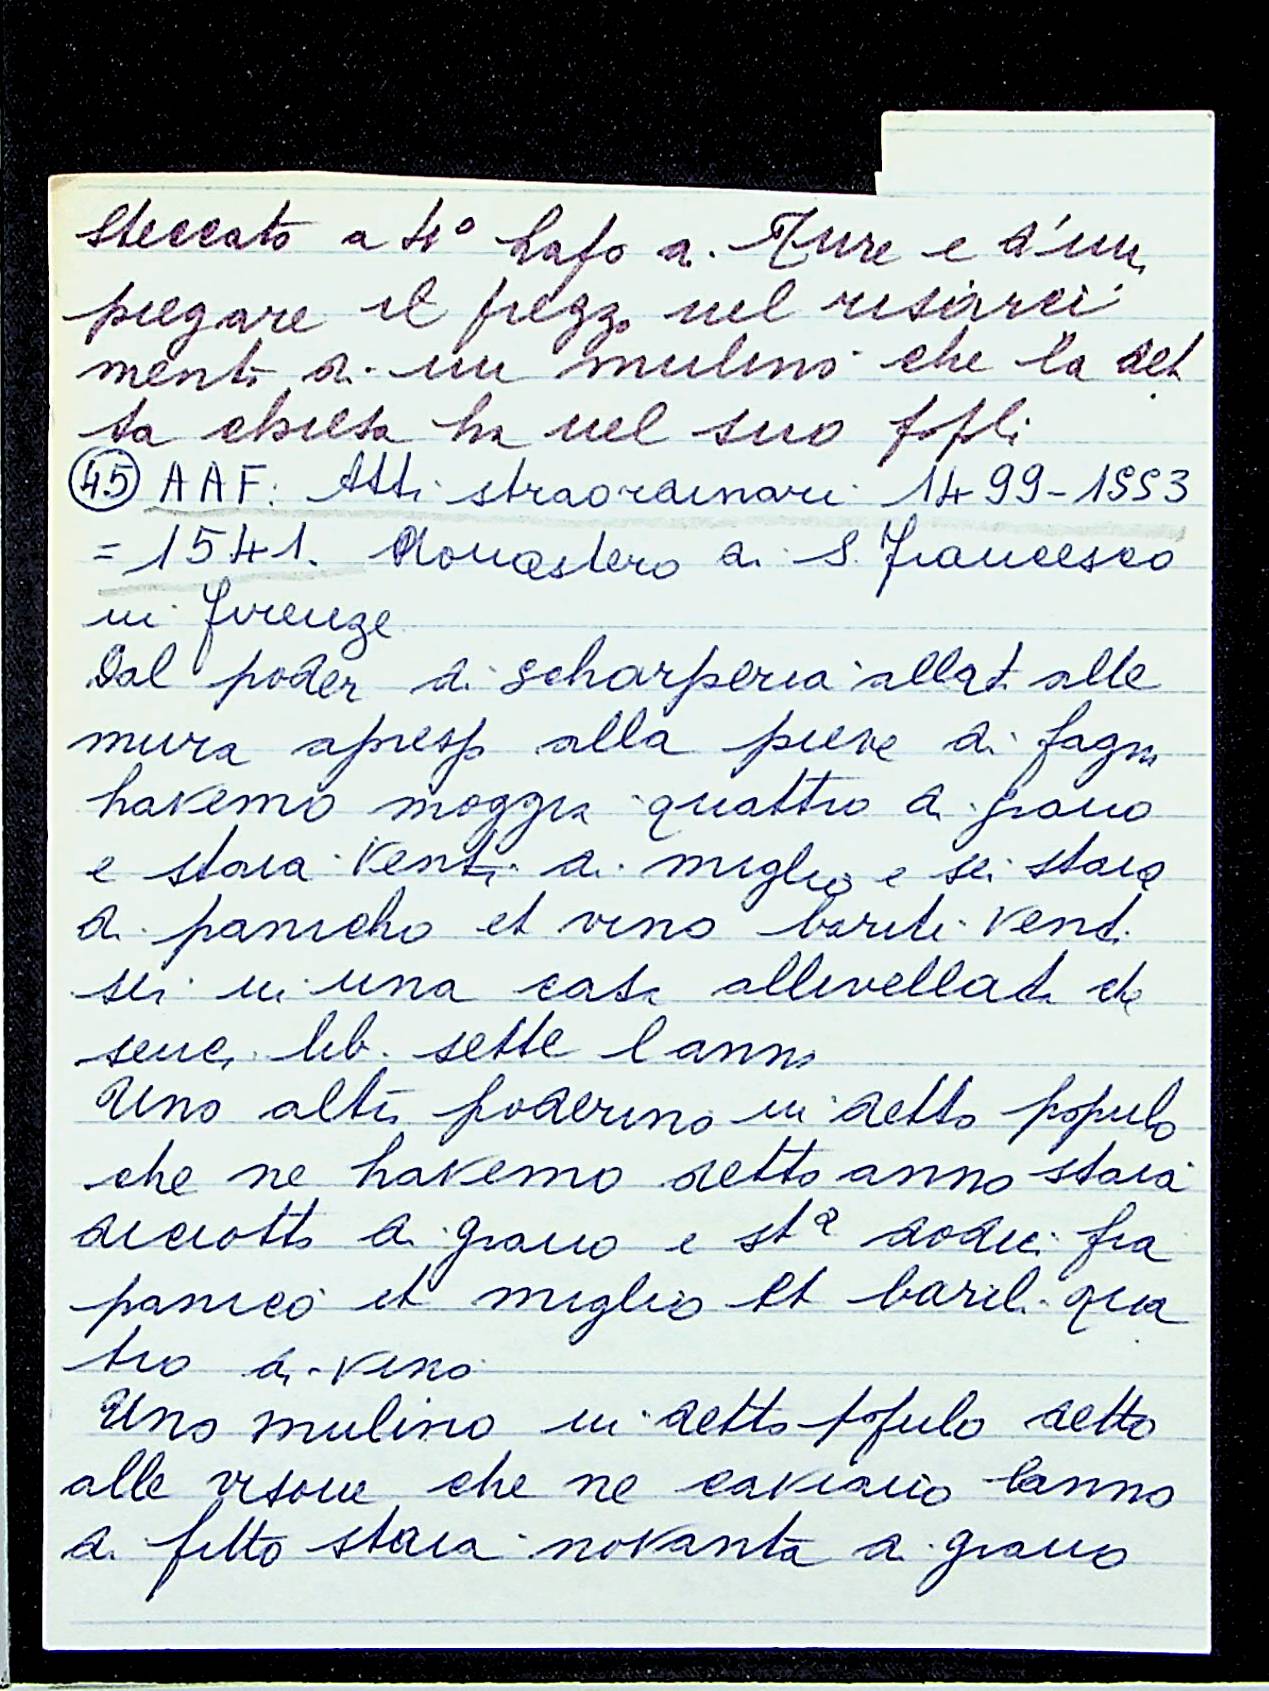 steccato a 4º Lapo di Ture e d'im
piegare il prezzo nel risarci
mento di un mulino che la det
ta chiesa ha nel suo popolo
(45) AAF. Atti straordinari 1499-1553
= 1541. Monastero di S. Francesco
in Firenze
Dal poder di Scharperia allato alle
mura apresso alla pieve di fagna
havemo moggia quattro di grano
e staia venti di miglio e sei staia
di panicho et vino barili venti
sei in una casa allivellata che
lib. sette l anno
Uno altro poderino in detto populo
che ne havemo detto anno staia
diciotto di grano e stª dodici fra
panico et miglio et barili qua
tro di vino
Uno mulino in detto populo detto
alle che ne caviano lanno
di fitto staia novanta di grano